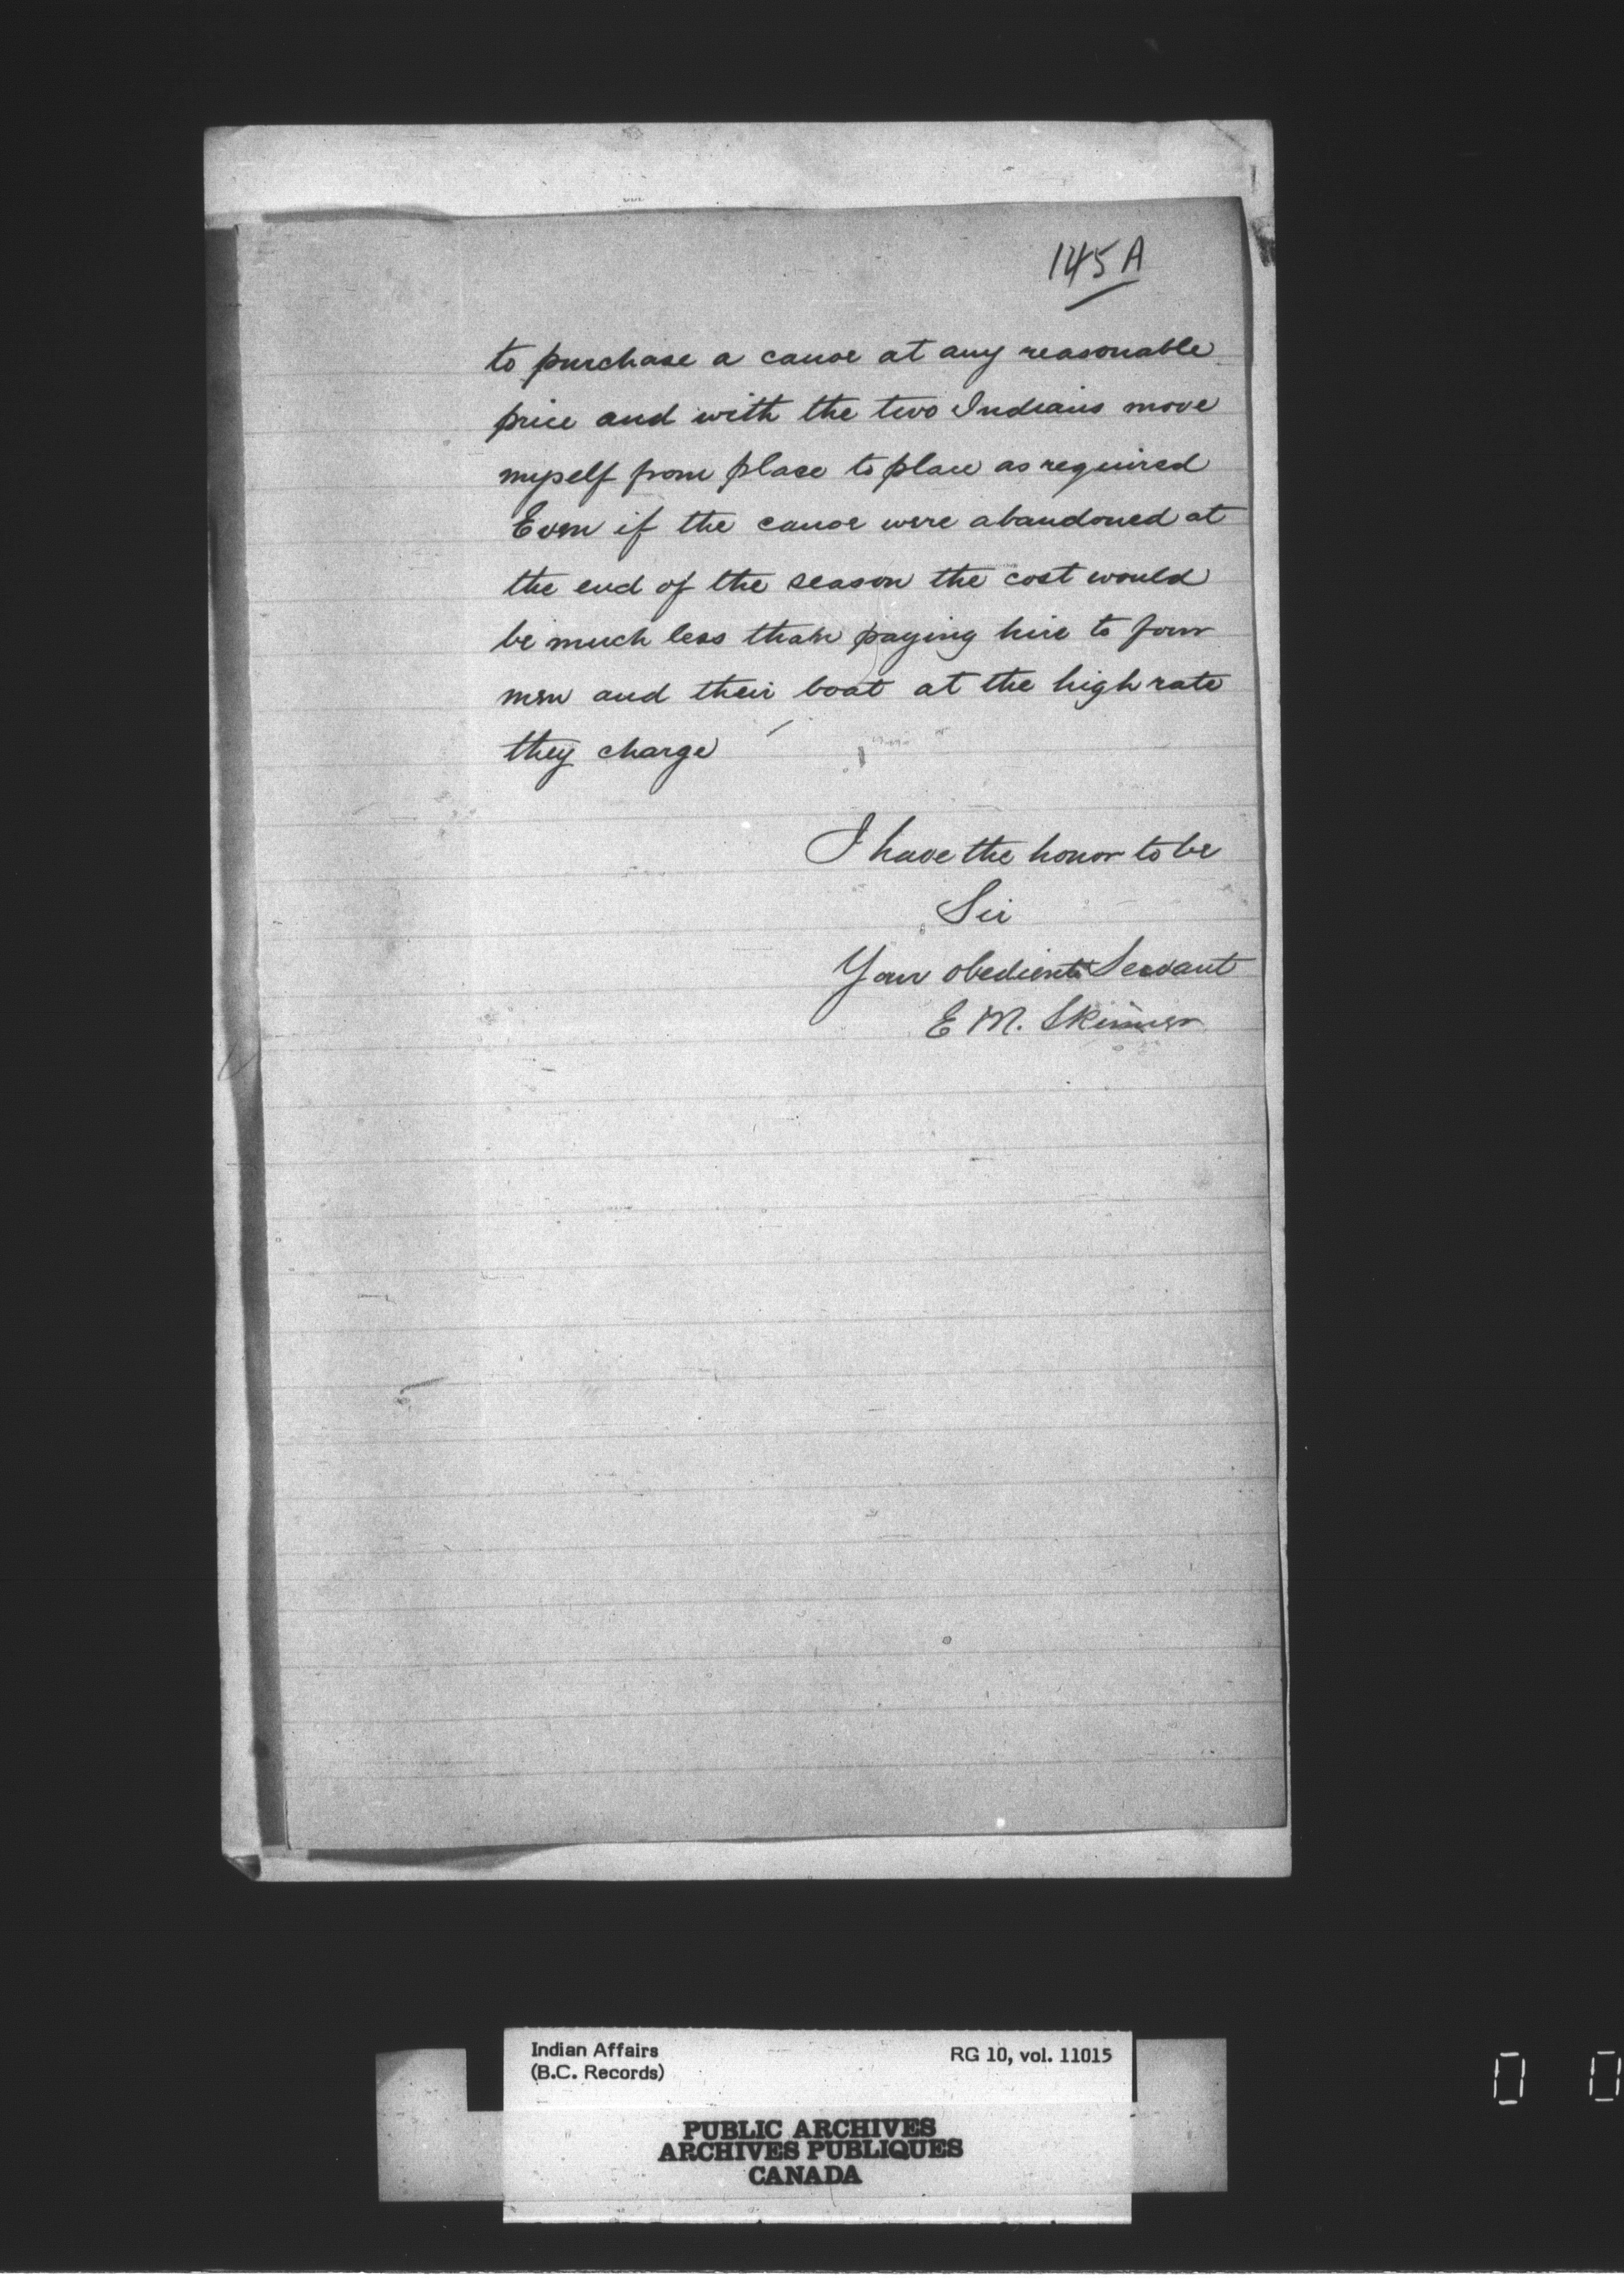 145 A
to purchase a canoe at any reasonable
price and with the two Indians move
myself from place to place as required
Even if the canoe were abandoned at
the end of the season the cost would
be much less than paying hire to four
men and their boat at the high rate
they charge
I have the honor to be
Sir
Your obedient Servant
E M. Skinner
Indian Affairs
(B.C. Records)
RG 10, vol. 11015
PUBLIC ARCHIVES
ARCHIVES PUBLIQUES
CANADA
0 0